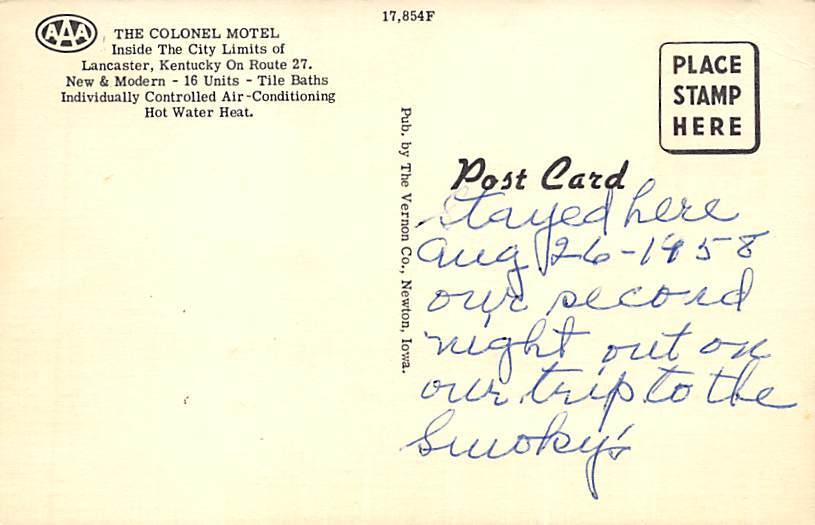 17,854F
AAA
THE COLONEL MOTEL
Inside The City Limits of
Lancaster, Kentucky On Route 27.
New & Modern - 16 Units - Tile Baths
Individually Controlled Air-Conditioning
Hot Water Heat.
Pub. by The Vernon Co., Newton, Iowa.
PLACE
STAMP
HERE
Post Card
Stayed here
Aug 26-1958
our second
night out on
our trip to the
Smoky's